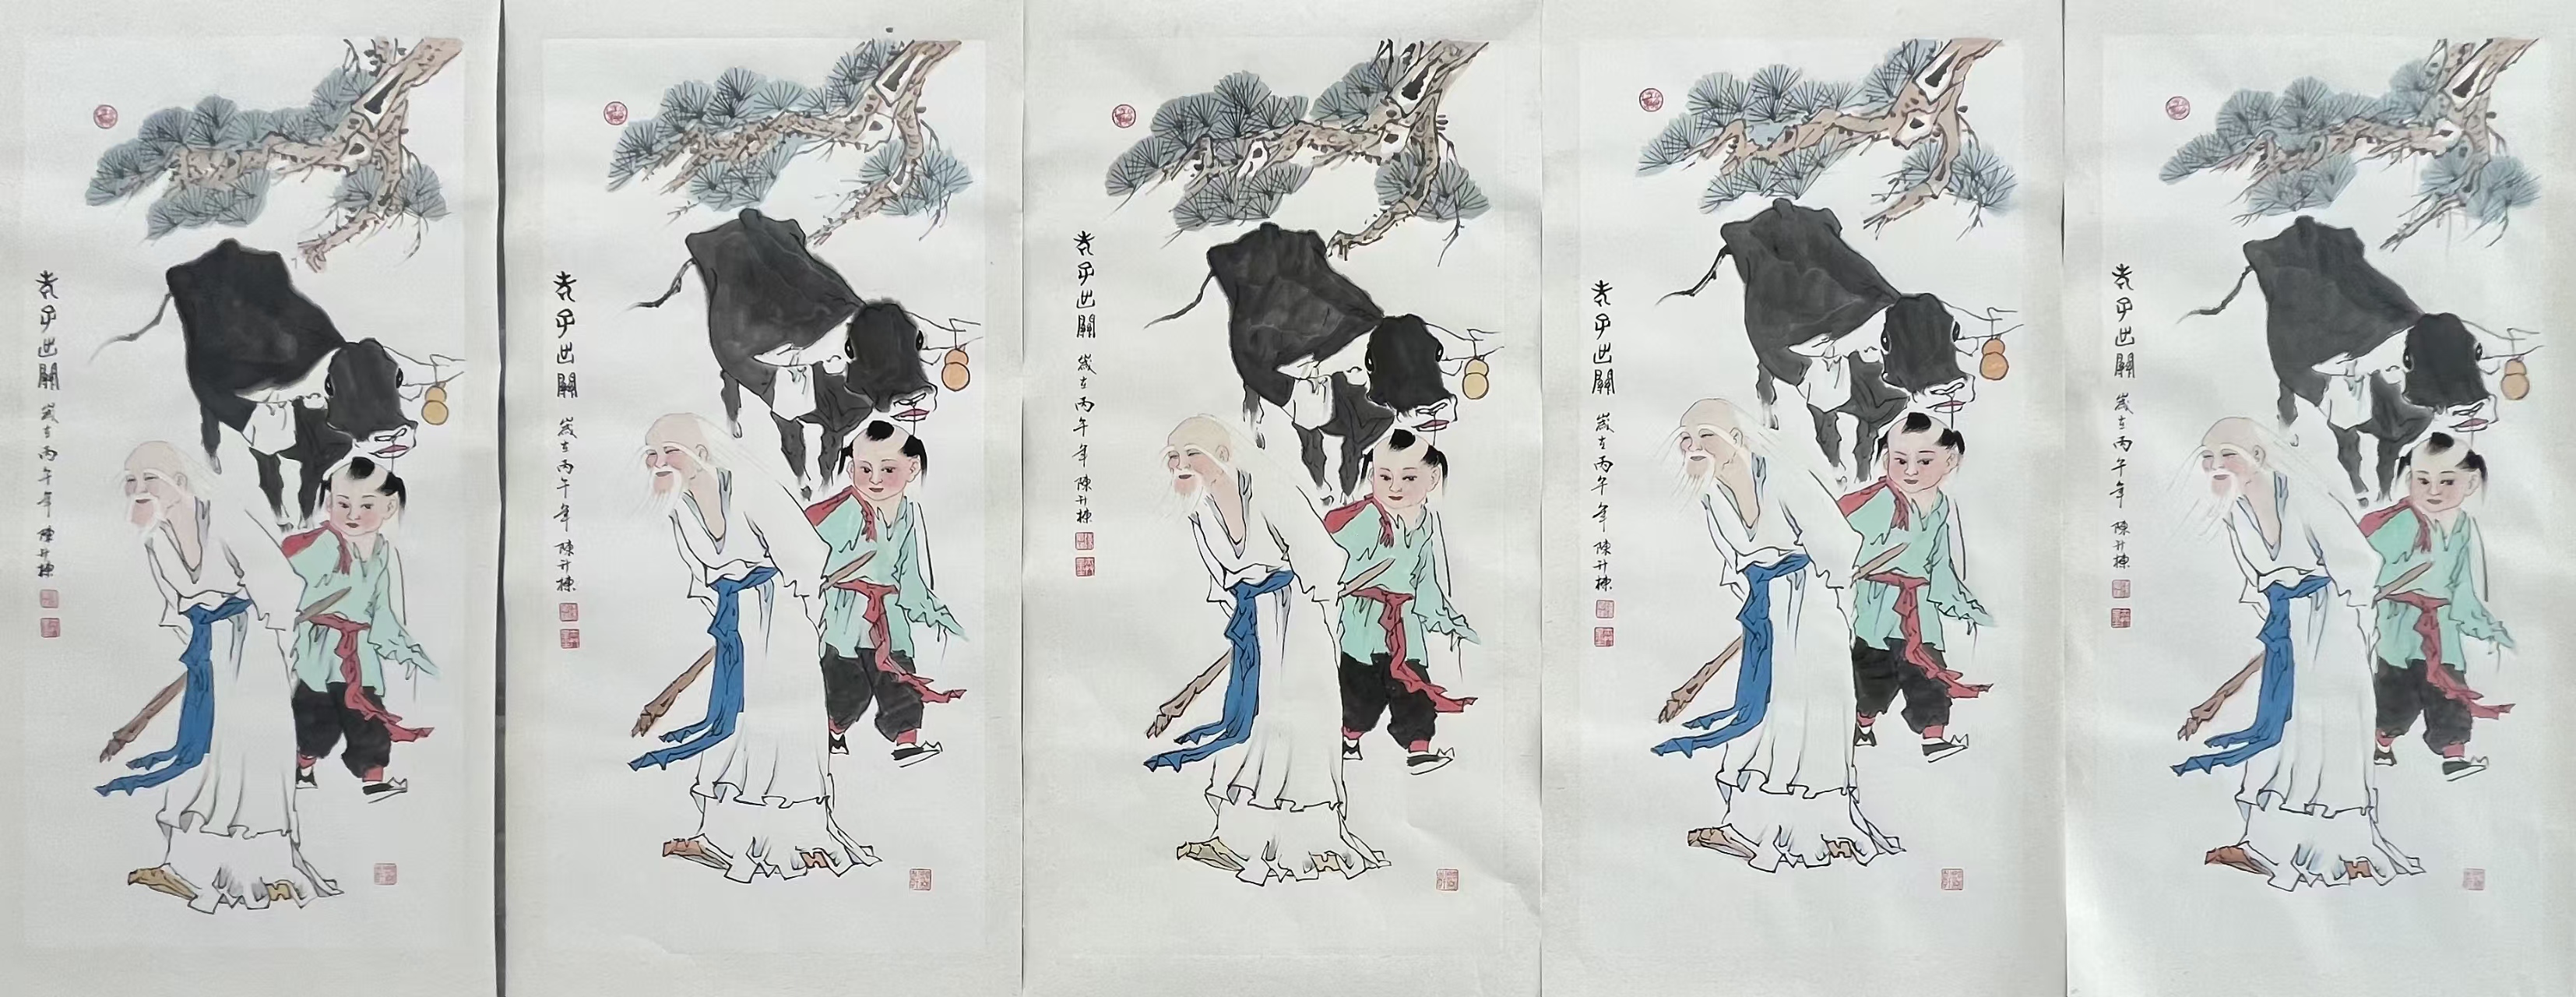 老子出關 歲在丙午年 陳升棟
老子出關 歲在丙午年 陳升棟
老子出關 歲在丙午年 陳升棟
老子出關 歲在丙午年 陳升棟
老子出關 歲在丙午年 陳升棟